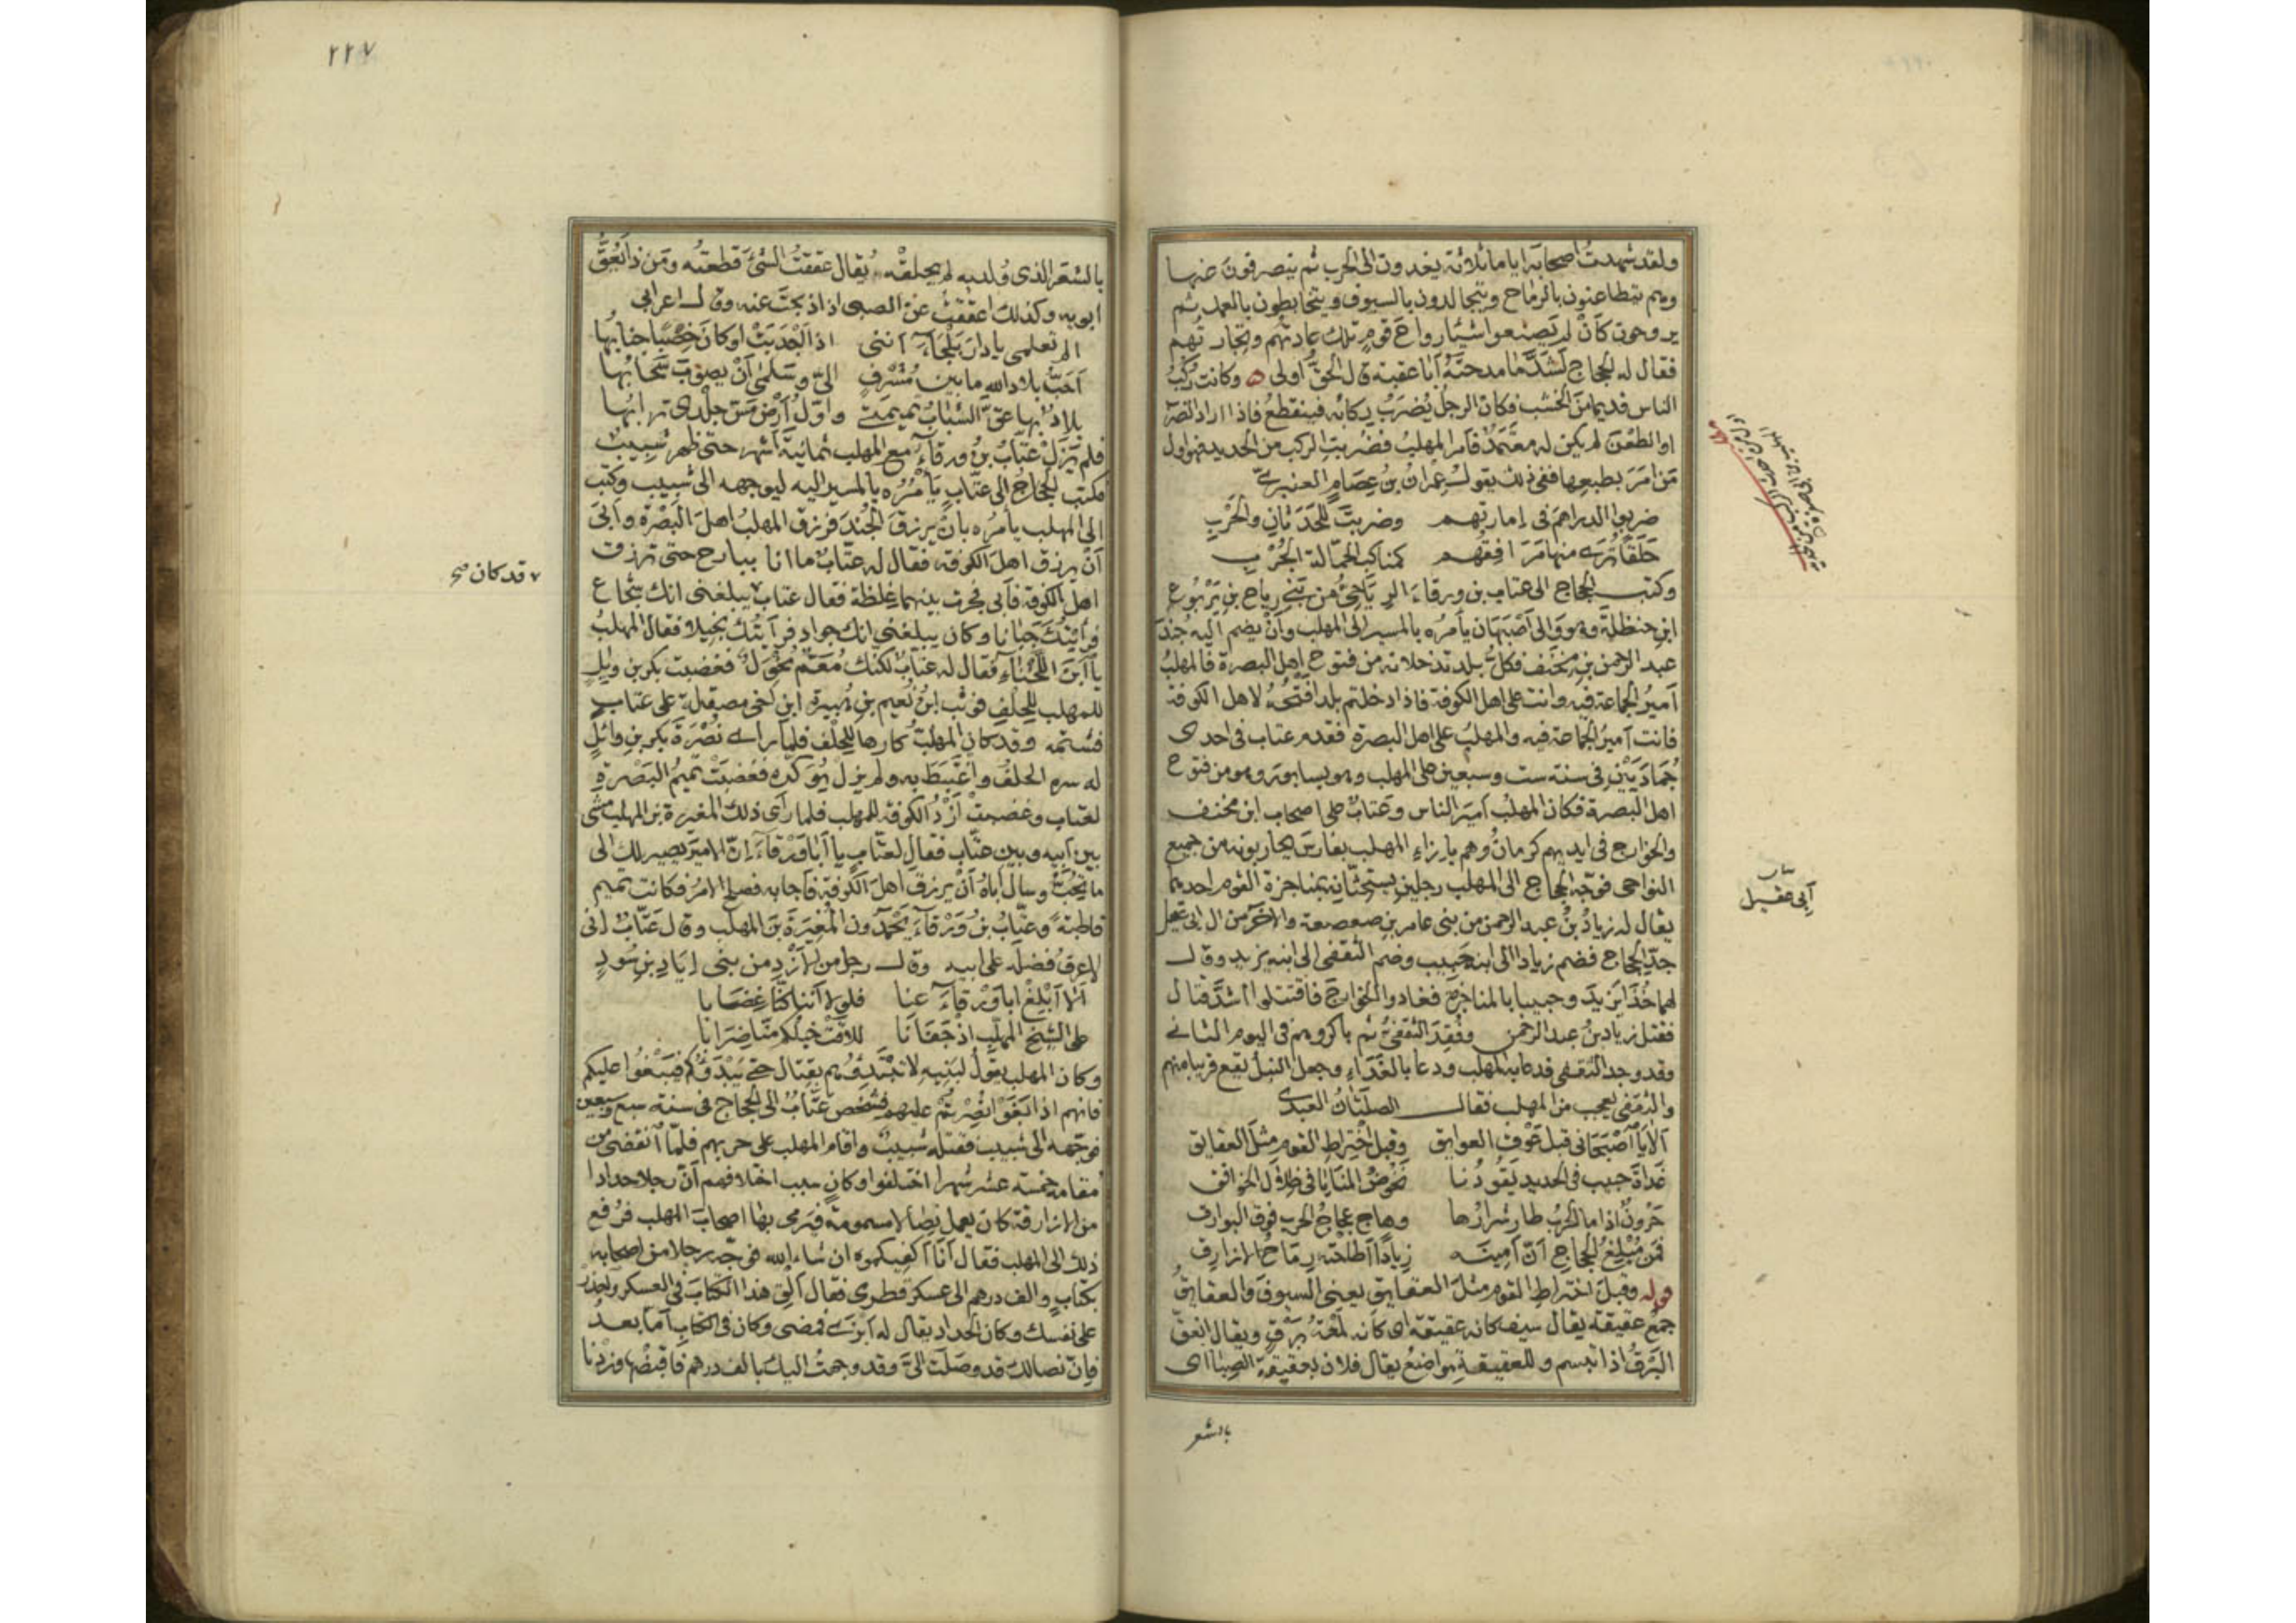 ولقد شهدت أصحابه اياما ثلاثة يغدون الى الحرب ثم ينصرفون عنها
وهم يتطاعنون بالرماح ويتجالدون بالسيوف ويتخابطون بالعمد ثم
يروحون كأن لم يصنعوا شيئا رواح قوم تلك عادتهم وتجارتهم
فقال له الحجاج لشد ما مدحته أبا عقبة قال الحق أولى ه وكانت ركب
الناس قديما من الخشب فكان الرجل يضرب بركابه فينقطع فاذا اراد الضرب
او الطعن لم يكن له معتمد فأمر المهلب فضربت الركب من الحديد فهو اول
من أمر بطبعها ففى ذلك يقول عمران بن عصام العنبرى
ضربوا الدراهم فى إمارتهم وضربت للحدثان والحرب
حلقا ترى منها مرافقهم كمناكب الجمالة الجرب
وكتب الحجاج الى عتاب بن ورقاء الرياحى من بنى رياح بن يربوع
ابن حنظلة وهو والى أصبهان يأمره بالمسير الى المهلب وأن يضم اليه جند
عبد الرحمن بن مخنف فكل بلد تدخلانه من فتوح اهل البصرة فالمهلب
أمير الجماعة فيه وانت على اهل الكوفة فاذا دخلتم بلدا فتحه لاهل الكوفة
فانت أمير الجماعة فيه والمهلب على اهل البصرة فقدم عتاب فى احدى
جماديين فى سنة ست وسبعين على المهلب وهو بسابور وهو من فتوح
اهل البصرة فكان المهلب أمير الناس وعتاب على اصحاب ابن مخنف
والخوارج فى ايديهم كرمان وهم بازاء المهلب بفارس يحاربونه من جميع
النواحى فوجه الحجاج الى المهلب رجلين يستحثانه بمناجزة القوم احدهما
يقال له زياد بن عبد الرحمن من بنى عامر بن صعصعة والآخر من ال ابى عقيل
جد الحجاج فضم زيادا الى ابنه حبيب وضم الثقفى الى ابنه يزيد وقال
لهما خذا يزيد وحبيبا بالمناجزة فغادوا الخوارج فاقتتلوا أشد قتال
فقتل زياد بن عبد الرحمن وفقد الثقفى ثم باكروهم فى اليوم الثانى
وقد وجد الثقفى فدعا به المهلب ودعا بالغداء وجعل النبل يقع قريبا منهم
والثقفى يعجب من المهلب فقال الصلتان العبدى
ألا يا أصبحانى قبل عوق العوايق وقبل اختراط القوم مثل العقايق
غداة حبيب فى الحديد يقودنا نخوض المنايا فى ظلال الخوافق
حرون اذا ما الحرب طار شرارها وهاج عجاج الحرب فوق البوارق
فمن مبلغ الحجاج أن أمينه زيادا أطاحته رماح الازارق
قوله وقبل اختراط القوم مثل العقايق يعنى السيوف والعقايق
جمع عقيقة يقال سيف كانه عقيقة اى كانه لمعة برق ويقال انعق
البرق اذا تبسم وللعقيقة مواضع يقال فلان بعقيقة الصبا اى
أبى عقيل
بالشعر
٢٢٧
بالشعر الذى ولد به لم يحلقه يقال عققت الشئ قطعته ومن ذا يعق
ابويه وكذلك اعققت عن الصبى اذا ذبحت عنه وقال اعرابى
الم تعلمى يا دار بلجاء أننى اذا أجدبت او كان خصبا جنابها
أحب بلاد الله ما بين مشرف الى وسلمى أن يصوب سحابها
بلاد بها عق الشباب تميمتى واول أرض مس جلدى ترابها
فلم يزل عتاب بن ورقاء مع المهلب ثمانية أشهر حتى ظهر شبيب
فكتب الحجاج الى عتاب يأمره بالمسير اليه ليوجهه الى شبيب وكتب
الى المهلب يأمره بأن يرزق الجند فرزق المهلب اهل البصرة وأبى
أن يرزق اهل الكوفة فقال له عتاب ما انا ببارح حتى ترزق
اهل الكوفة فأبى فجرت بينهما غلظة فقال عتاب ٧ يبلغنى انك شجاع
٧ قد كان صح
فرأيتك جبانا وكان يبلغنى انك جواد فرأيتك بخيلا فقال المهلب
يا ابن اللخناء فقال له عتاب لكنك معم مخول فغضبت بكر بن وايل
للمهلب للحلف فوثب ابن نعيم بن هبيرة ابن اخى مصقلة على عتاب
فشتمه وقد كان المهلب كارها للحلف فلما رأى نصرة بكر بن وائل
له سره الحلف واغتبط به ولم يزل يؤكده فغضبت تميم البصرة
لعتاب وغضبت أزد الكوفة للمهلب فلما رأى ذلك المغيرة بن المهلب مشى
بين ابيه وبين عتاب فقال لعتاب يا أبا ورقاء إن الامير يصير لك الى
ما تحب وسأل أباه أن يرزق اهل الكوفة فأجابه فصلح الامر فكانت تميم
قاطبة وعتاب بن ورقاء يحمدون المغيرة بن المهلب وقال عتاب انى
لاعرف فضله على ابيه وقال رجل من الازد من بنى إياد بن سود
ألا أبلغ ابا ورقاء عنا فلولا أننا كنا غضابا
على الشيخ المهلب إذ جفانا للاقت خيلكم منا ضرابا
وكان المهلب يقول لبنيه لا تبتدؤهم بقتال حتى يبدؤكم فيبغوا عليكم
فانهم اذا بغوا نصرتم عليهم فشخص عتاب الى الحجاج فى سنة سبع وسبعين
فوجهه الى شبيب فقتله شبيب واقام المهلب على حربهم فلما انقضى من
مقامه خمسة عشر شهرا اختلفوا وكان سبب اختلافهم أن رجلا حدادا
من الازارقة كان يعمل نصالا مسمومة فيرمى بها اصحاب المهلب فرفع
ذلك الى المهلب فقال أنا أكفيكموه ان شاء الله فوجه رجلا من اصحابه
بكتاب والف درهم الى عسكر قطرى فقال ألق هذا الكتاب فى العسكر واحذر
على نفسك وكان الحداد يقال له أبزى فمضى وكان فى الكتاب أما بعد
فإن نصالك قد وصلت الى وقد وجهت اليك بالف درهم فاقبضها وزدنا